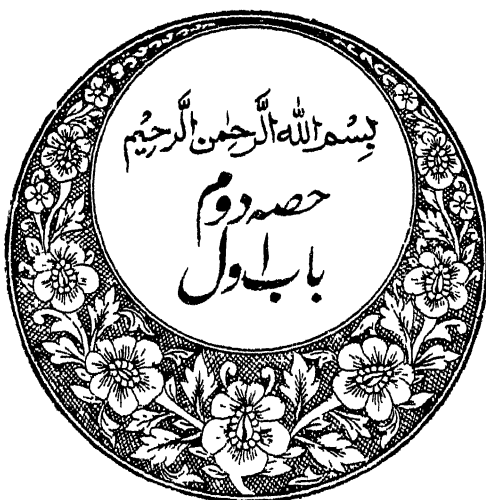 بِسْمِ اللهِ الرَّحْمٰنِ الرَّحِيْمِ
حصہ دوم
باب اول